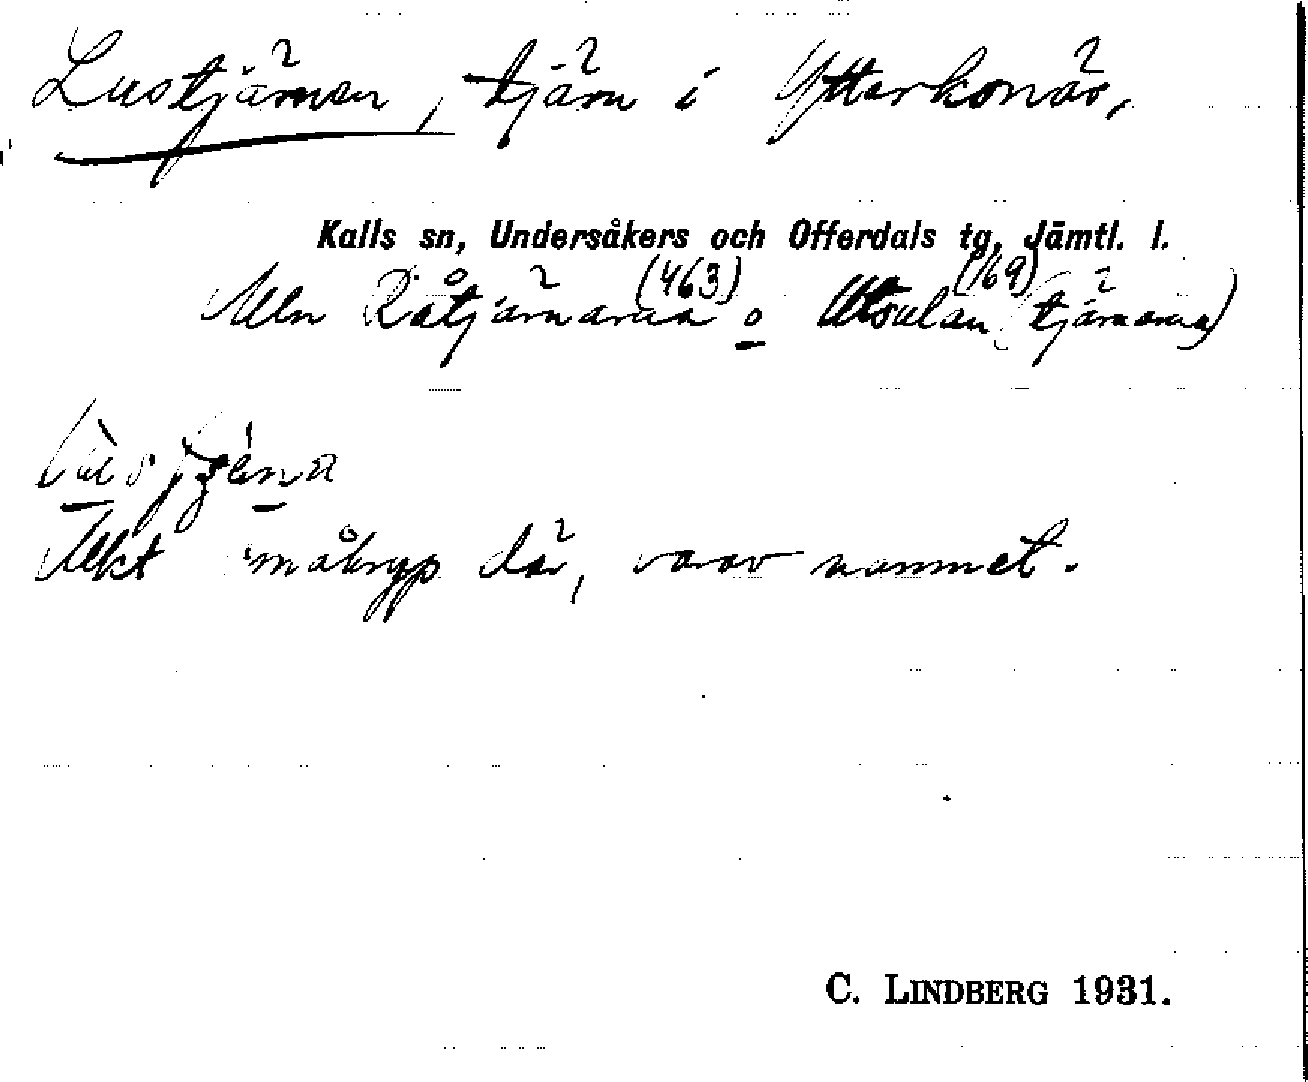 Lustjärnen, tjärn i Ytterkonär,
Kalls sn, Undersåkers och Offerdals tg, Jämtl. l.
Mln Råtjärnarna (463) o (169) (tjärnarna)
småkryp där, varav namnet.
C. LINDBERG 1931.